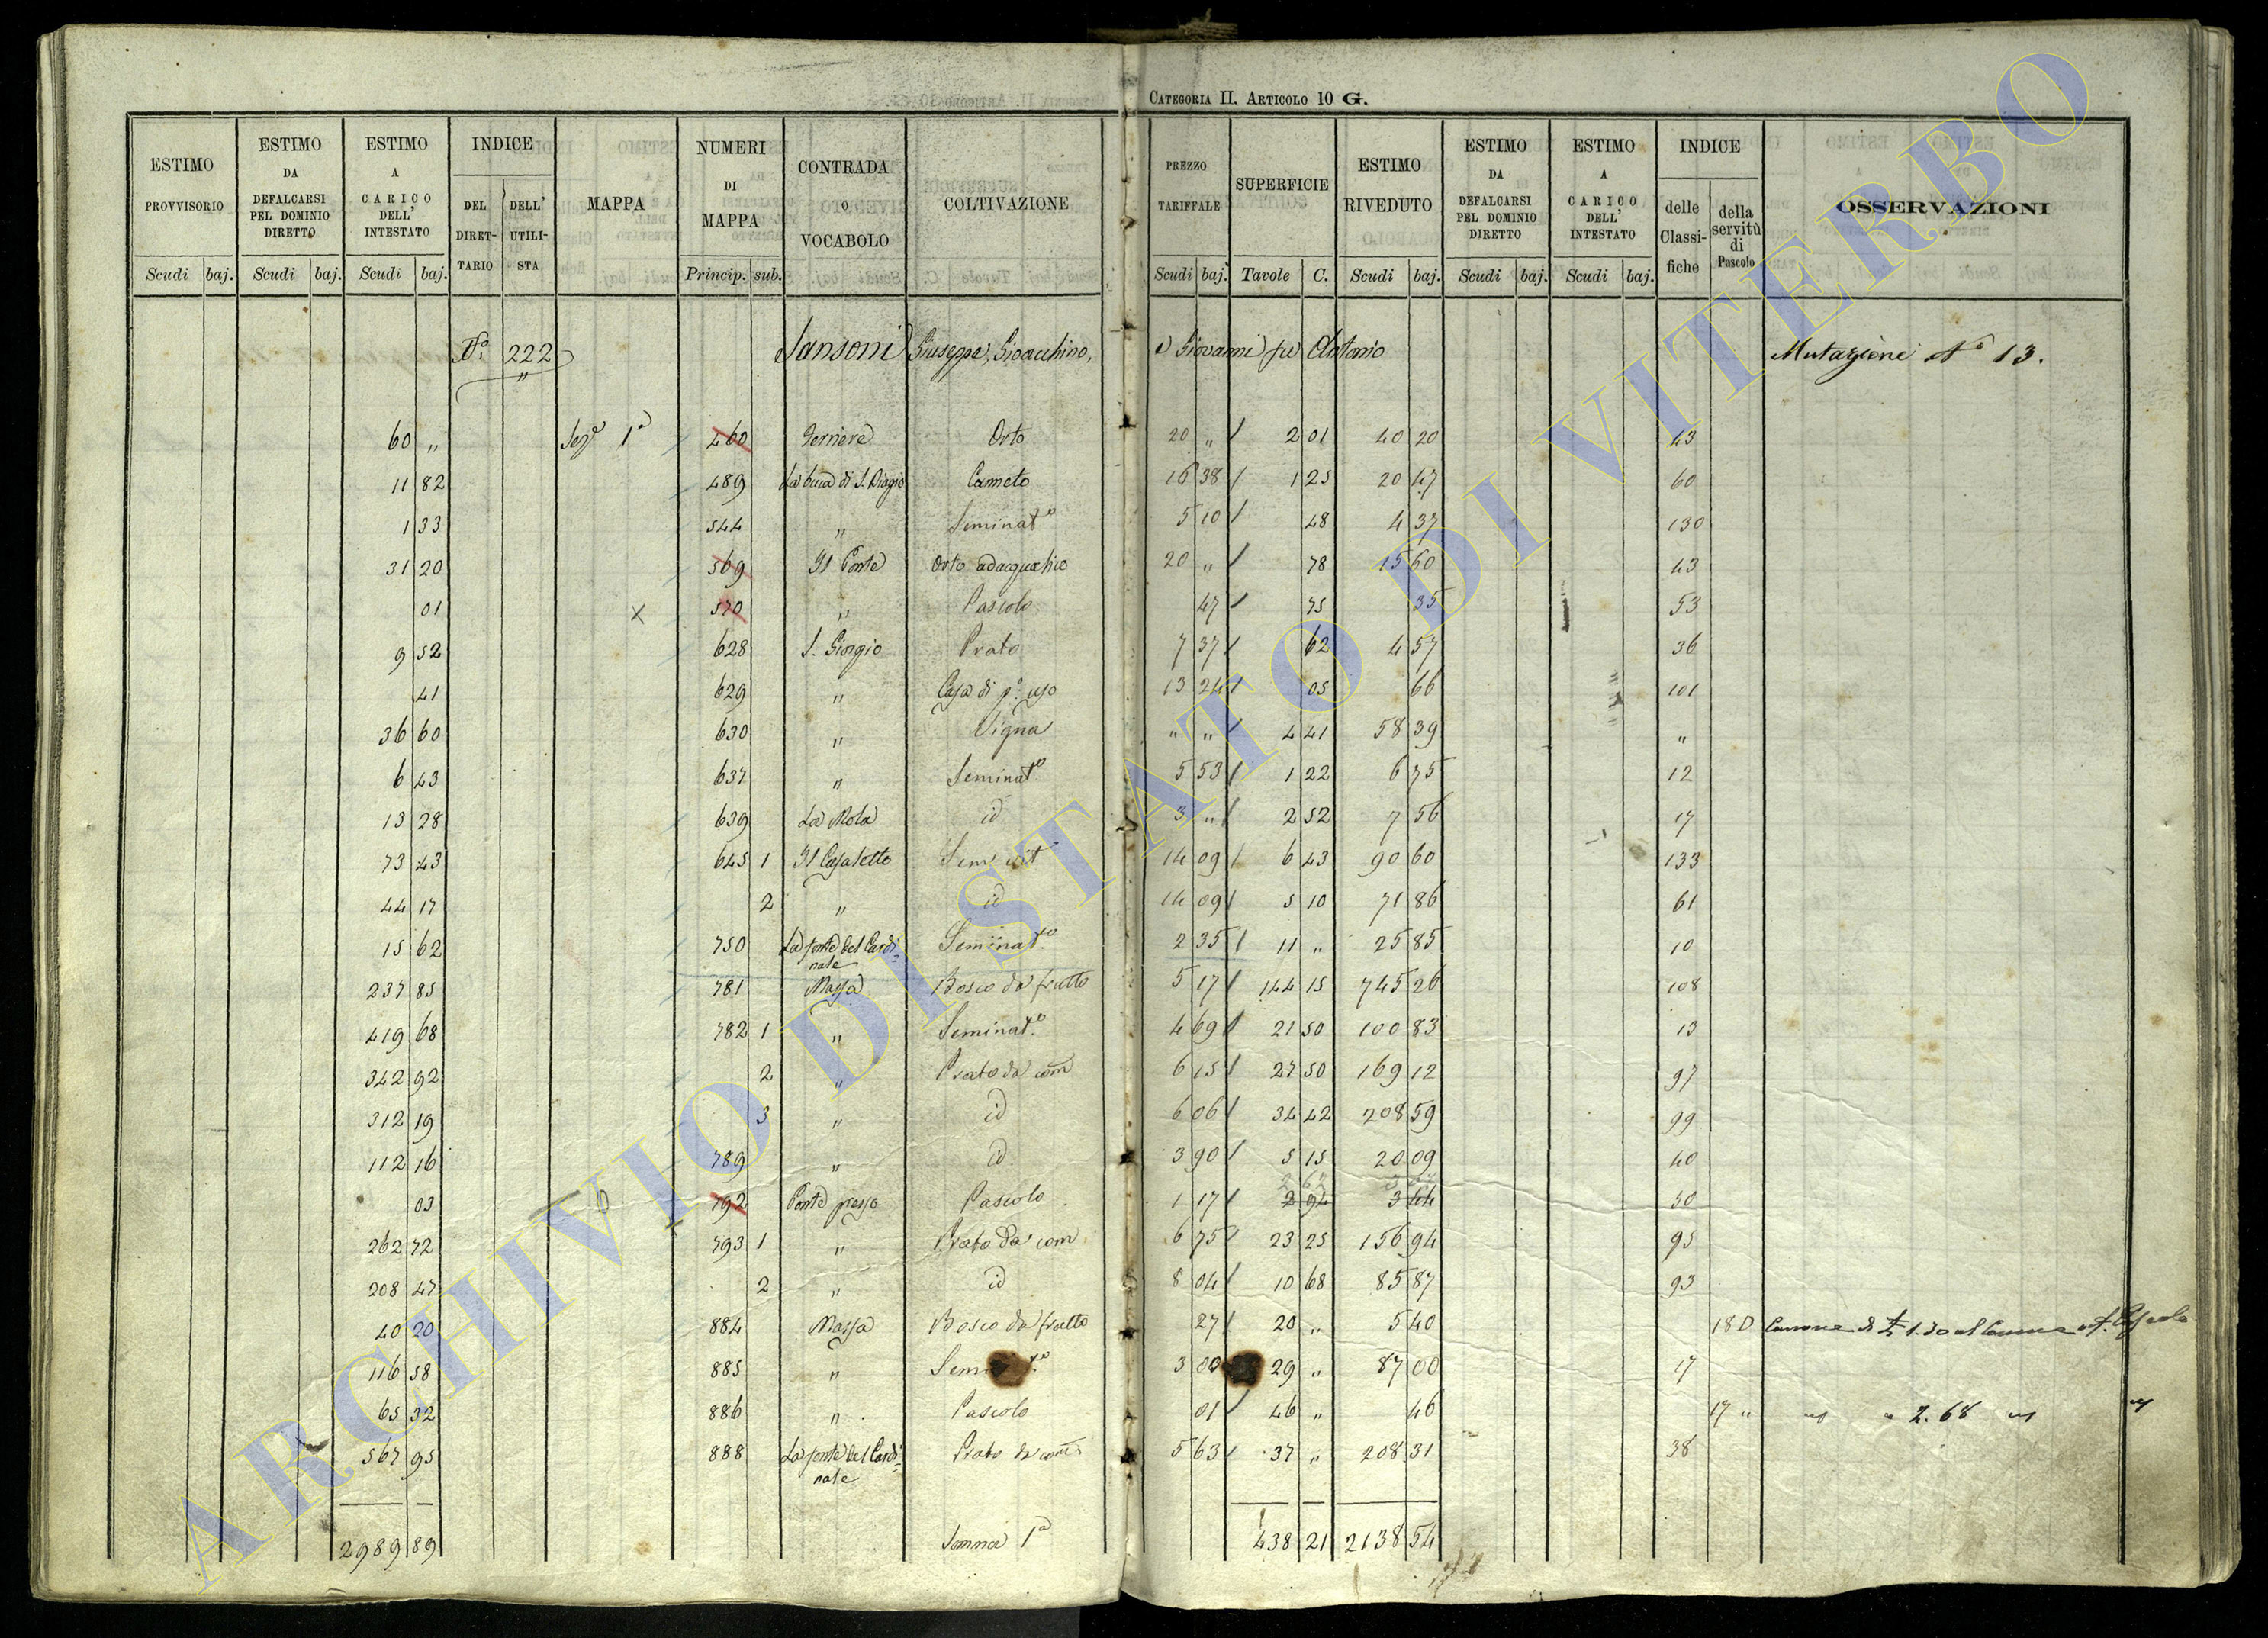 CATEGORIA II. ARTICOLO 10 G.
ESTIMO PROVVISORIO Scudi baj. ESTIMO DA DEFALCARSI PEL DOMINIO DIRETTO Scudi baj. ESTIMO A CARICO DELL' INTESTATO Scudi baj. INDICE DEL DIRET-TARIO DELL' UTILI-STA MAPPA NUMERI DI MAPPA Princip. sub. CONTRADA O VOCABOLO COLTIVAZIONE PREZZO TARIFFALE Scudi baj. SUPERFICIE Tavole C. ESTIMO RIVEDUTO Scudi baj. ESTIMO DA DEFALCARSI PEL DOMINIO DIRETTO Scudi baj. ESTIMO A CARICO DELL' INTESTATO Scudi baj. INDICE delle Classi-fiche della servitù di Pascolo OSSERVAZIONI
N.º 222 Sansoni Giuseppe, Gioacchino, e Giovanni fu Antonio Mutazione Nº 13.
"
60 " Sezª 1ª 460 Orto 20 " 2 01 40 20 43
11 82 489 La buca di S. Biagio Canneto 16 38 1 25 20 47 60
1 33 544 " Seminatº 5 10 48 4 37 130
31 20 569 Il Ponte Orto adacquatico 20 " 78 15 60 43
01 X 570 " Pascolo 47 75 35 53
9 52 628 S. Giorgio Prato 7 37 62 4 57 36
41 629 " Casa di pº uso 13 24 05 66 101
36 60 630 " Vigna " " 4 41 58 39 "
6 43 637 " Seminatº 5 53 1 22 6 75 12
13 28 639 La Mola id 3 " 2 52 7 56 17
73 43 645 1 Il Casaletto Sem. vit 14 09 6 43 90 60 133
44 17 2 " id 14 09 5 10 71 86 61
15 62 750 La fonte del Cardi= Seminatº. 2 35 11 " 25 85 10
nale
237 85 781 Massa Bosco da frutto 5 17 144 15 745 26 108
419 68 782 1 " Seminatº. 4 69 21 50 100 83 13
342 92 2 " Prato da com 6 15 27 50 169 12 97
312 19 3 " id 6 06 34 42 208 59 99
112 16 789 " id 3 90 5 15 20 09 40
03 792 Ponte presso Pascolo 1 17 2 94 3 44 50
262 72 793 1 " Prato da com 6 75 23 25 156 94 95
208 47 2 " id 8 04 10 68 85 87 93
40 20 884 Massa Bosco da frutto 27 20 " 5 40 18 D Canone di 1.30
116 58 885 " 3 00 29 " 87 00 17
65 32 886 " Pascolo 01 46 " 46 17 " " " 2.68 " "
567 95 888 La fonte del Cardi= Prato da com 5 63 37 " 208 31 38
nale
2989 89 Somma 1ª 438 21 2138 54
ARCHIVIO DI STATO DI VITERBO